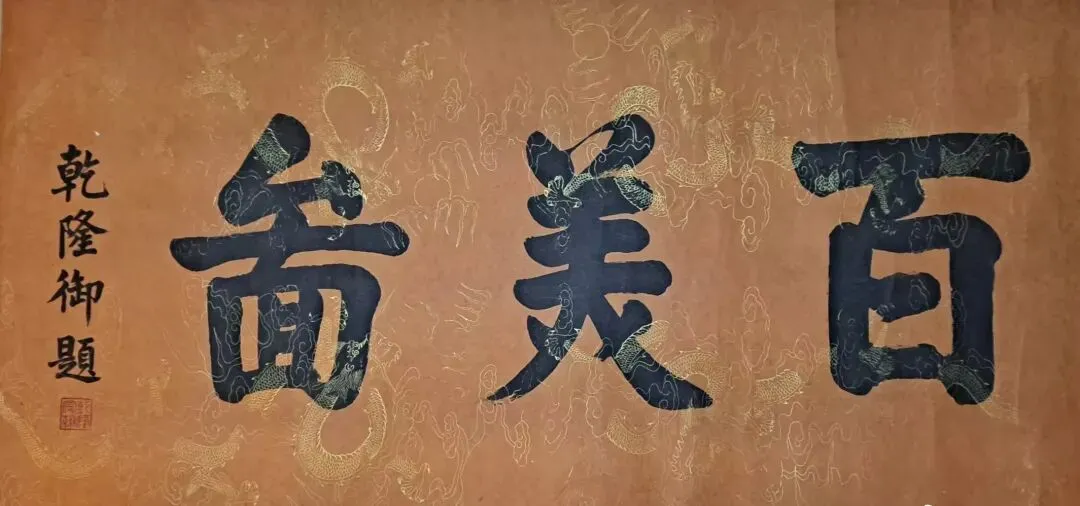 百美啚
乾隆御題